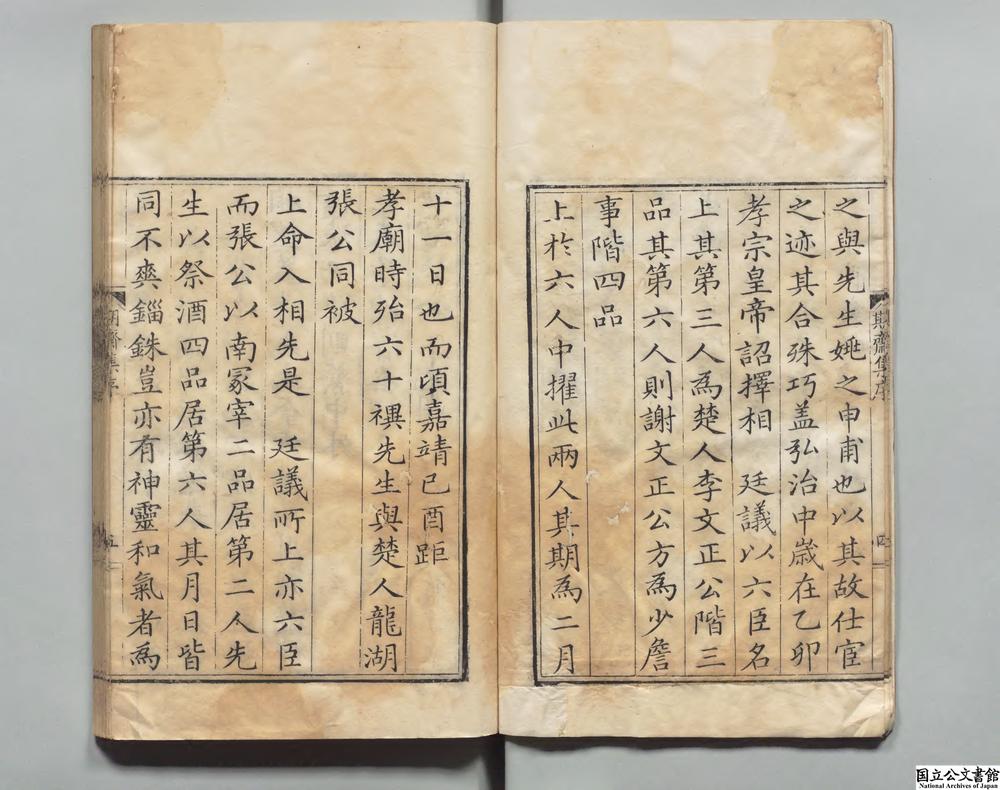 之與先生姚之申甫也以其故仕宦
之迹其合殊巧盖弘治中歲在乙卯
孝宗皇帝詔擇相　廷議以六臣名
上其第三人為楚人李文正公階三
品其第六人則謝文正公方為少詹
事階四品
上於六人中擢此兩人其期為二月
期齋集序
四
十一日也而頃嘉靖己酉距
孝廟時殆六十禩先生與楚人龍湖
張公同被
上命入相先是　廷議所上亦六臣
而張公以南冢宰二品居第二人先
生以祭酒四品居第六人其月日皆
同不爽錙銖豈亦有神靈和氣者為
期齋集序
五
国立公文書館
National Archives of Japan